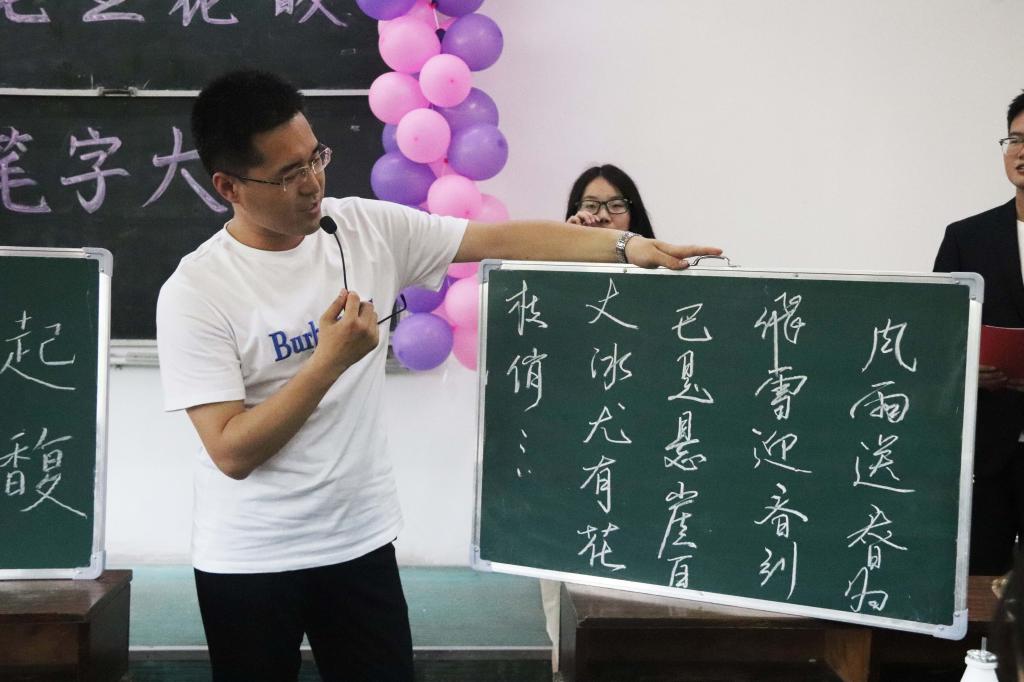 笔字大
起馥
Bur
风雨送春归
飛雪迎春到
已是悬崖百
丈冰尤有花
枝俏…